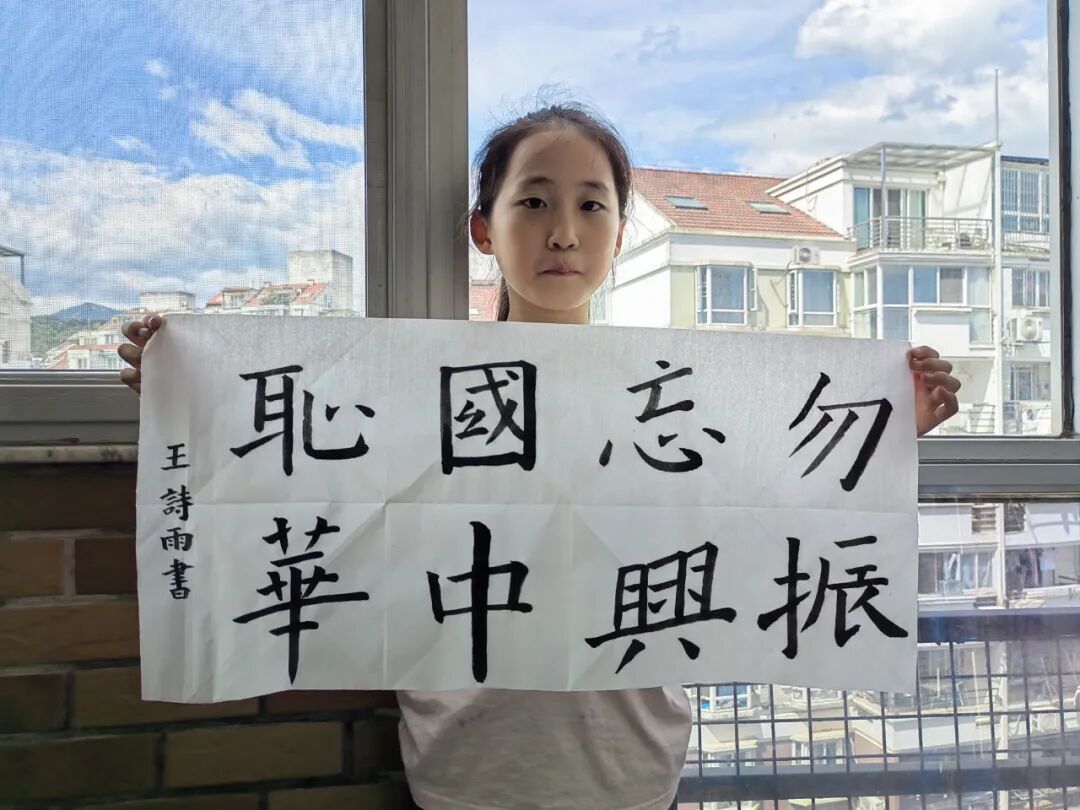 勿忘國恥
振興中華
王詩雨書